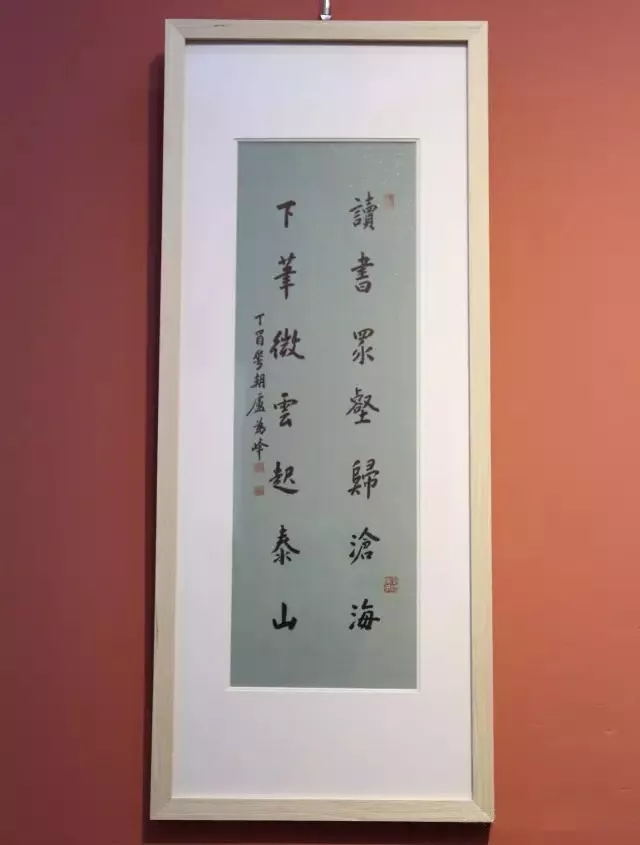 讀書眾壑歸滄海
下筆微雲起泰山
丁酉華朝盧為峰